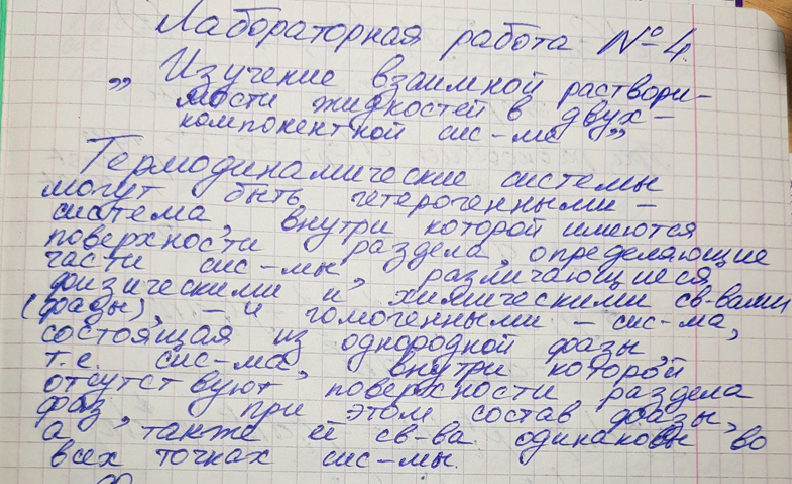 Лабораторная работа №4.
„Изучение взаимной раствори-
мости жидкостей в двух-
компонентной сис-ме”
Термодинамические системы
могут быть гетерогенными –
система, внутри которой имеются
поверхности раздела, определяющие
части сис-мы, различающиеся
физическими и химическими св-вами
(фазы), – и гомогенными – сис-ма,
состоящая из однородной фазы,
т.е. сис-ма, внутри которой
отсутствуют поверхности раздела
фаз, при этом состав фазы,
а также её св-ва одинаковы во
всех точках сис-мы.